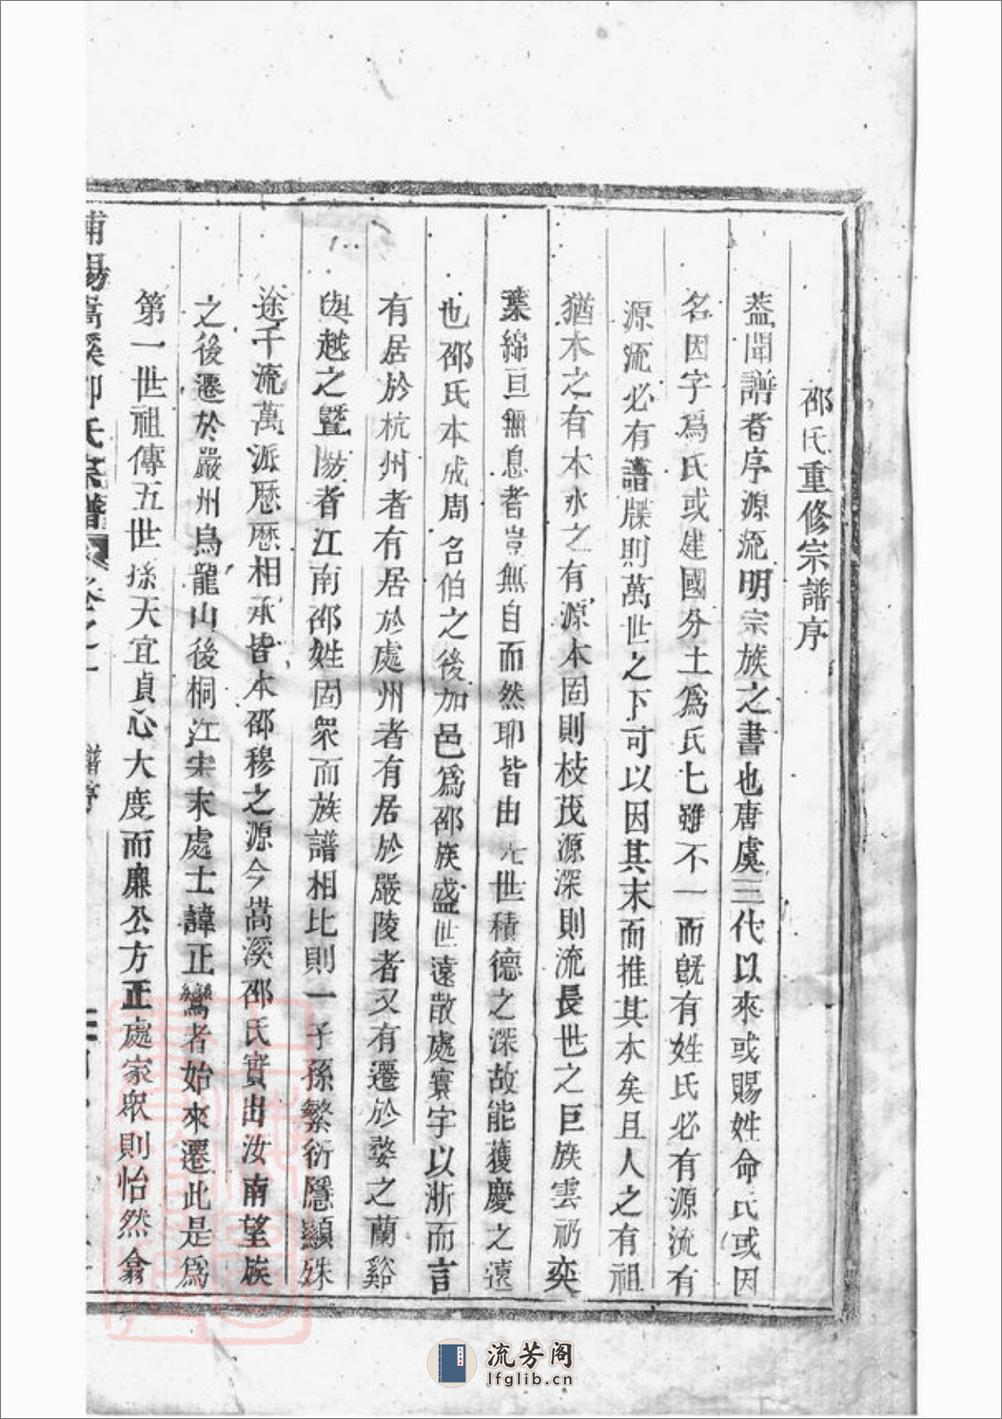 邵氏重修宗譜序
蓋聞譜者序源流明宗族之書也唐虞三代以來或賜姓命氏或因
名因字爲氏或建國分土爲氏氏雖不一而旣有姓氏必有源流有
源流必有譜牒則萬世之下可以因其末而推其本矣且人之有祖
猶木之有本水之有源本固則枝茂源深則流長世之巨族雲礽奕
葉綿亘無息者豈無自而然耶皆由先世積德之深故能獲慶之遠
也邵氏本成周召伯之後加邑爲邵族盛世遠散處寰宇以浙而言
有居於杭州者有居於處州者有居於嚴陵者又有遷於婺之蘭谿
與越之暨陽者江南邵姓固衆而族譜相比則一子孫繁衍隱顯殊
途千流萬派歷歷相承皆本邵穆之源今嵩溪邵氏實出汝南望族
之後遷於嚴州烏龍山後桐江宋末處士諱正鸞者始來遷此是爲
第一世祖傳五世孫天宜貞心大度而廉公方正處家衆則怡然翕
浦陽嵩溪邵氏宗譜 卷之一 譜序
流芳阁
lfglib.cn